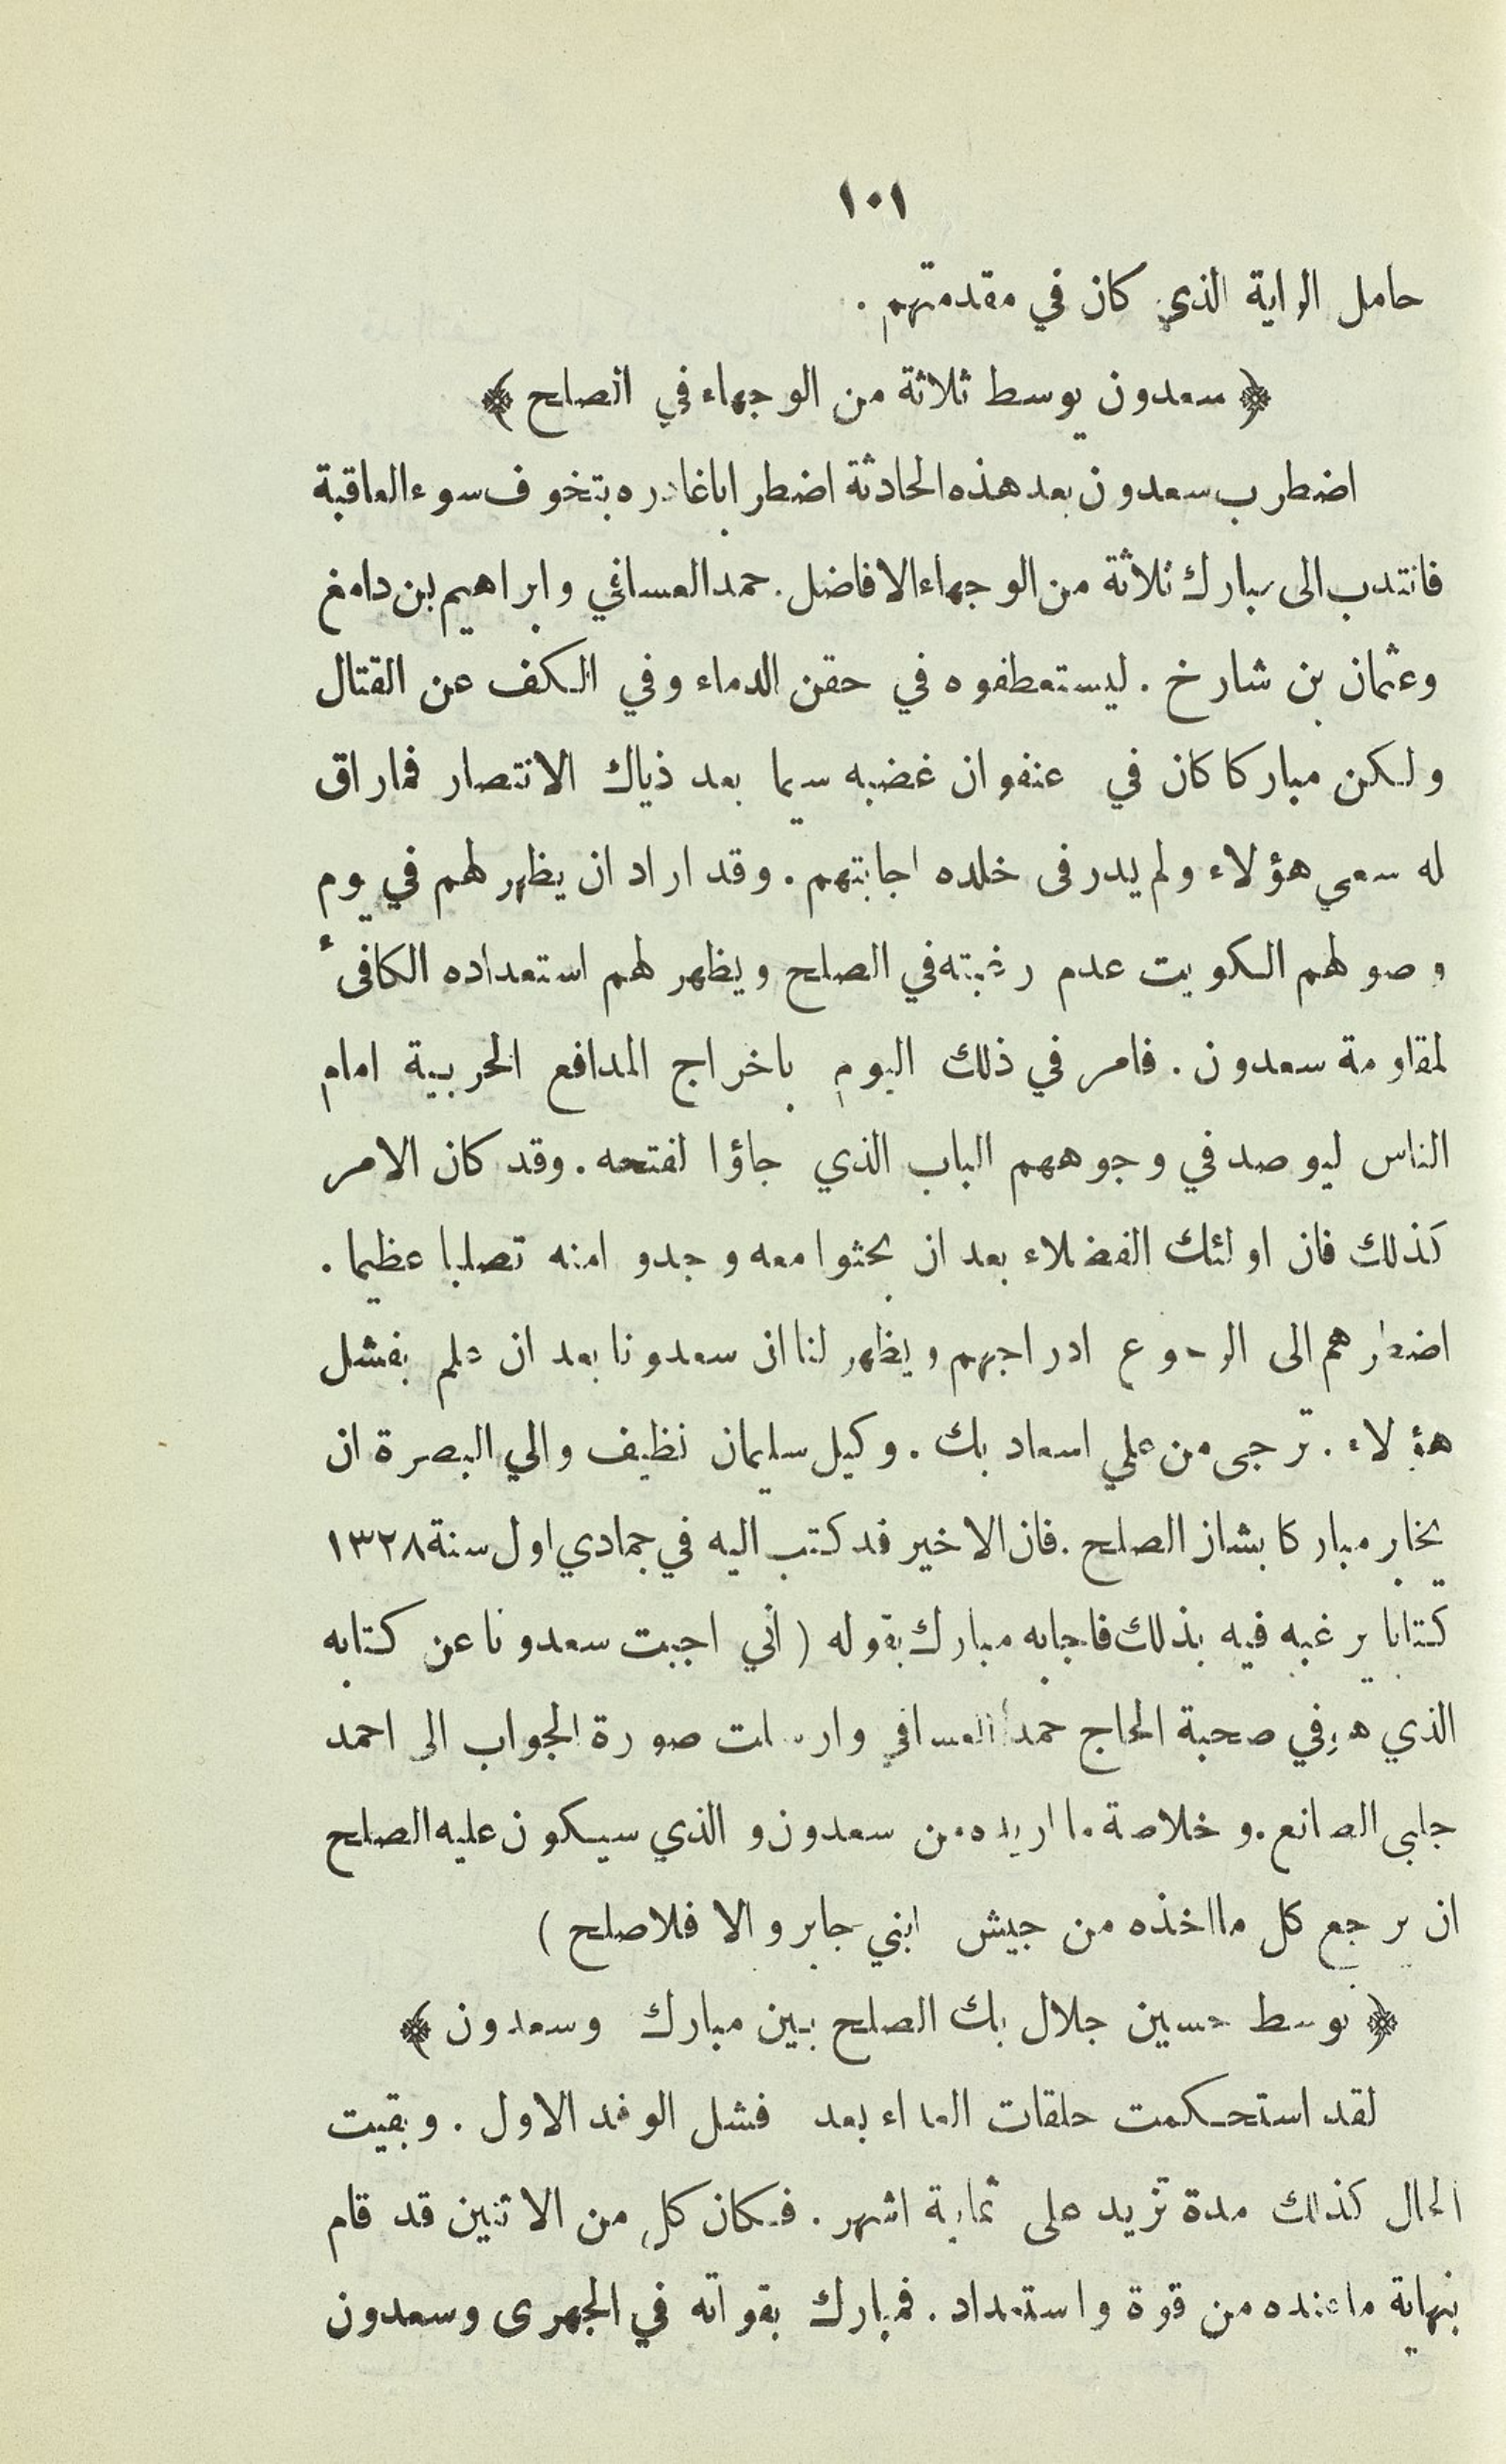 ١٠١
حامل الراية الذي كان في مقدمتهم .
﴿ سعدون يوسط ثلاثة من الوجهاء في الصلح ﴾
اضطرب سعدون بعد هذه الحادثة اضطرابا غادره يتخوف سوء العاقبة
فانتدب الى مبارك ثلاثة من الوجهاء الافاضل . حمد العسافي وابراهيم بن دامغ
وعثمان بن شارخ . ليستعطفوه في حقن الدماء وفي الكف عن القتال
ولكن مباركا كان في عنفوان غضبه سيما بعد ذياك الانتصار فما راق
له سعي هؤلاء ولم يدر فى خلده اجابتهم . وقد اراد ان يظهر لهم في يوم
وصولهم الكويت عدم رغبته في الصلح ويظهر لهم استعداده الكافىء
لمقاومة سعدون . فامر في ذلك اليوم باخراج المدافع الحربية امام
الناس ليوصد في وجوههم الباب الذي جاؤا لفتحه . وقد كان الامر
كذلك فان اولئك الفضلاء بعد ان بحثوا معه وجدوا منه تصلبا عظيما .
اضطرهم الى الرجوع ادراجهم ويظهر لنا ان سعدونا بعد ان علم بفشل
هؤلاء . ترجى من علي اسعاد بك . وكيل سليمان نظيف والي البصرة ان
يخابر مباركا بشان الصلح . فان الاخير قد كتب اليه في جمادي اول سنة ١٣٢٨
كتابا يرغبه فيه بذلك فاجابه مبارك بقوله ( اني اجبت سعدونا عن كتابه
الذي هو في صحبة الحاج حمد العسافي وارسلت صورة الجواب الى احمد
جلبى الصانع . وخلاصة ما اريده من سعدون والذي سيكون عليه الصلح
ان يرجع كل ما اخذه من جيش ابني جابر والا فلا صلح )
﴿ توسط حسين جلال بك الصلح بين مبارك وسعدون ﴾
لقد استحكمت حلقات العداء بعد فشل الوفد الاول . وبقيت
الحال كذلك مدة تزيد على ثمانية اشهر . فكان كل من الاثنين قد قام
بنهاية ما عنده من قوة واستعداد . فمبارك بقواته في الجهرى وسعدون